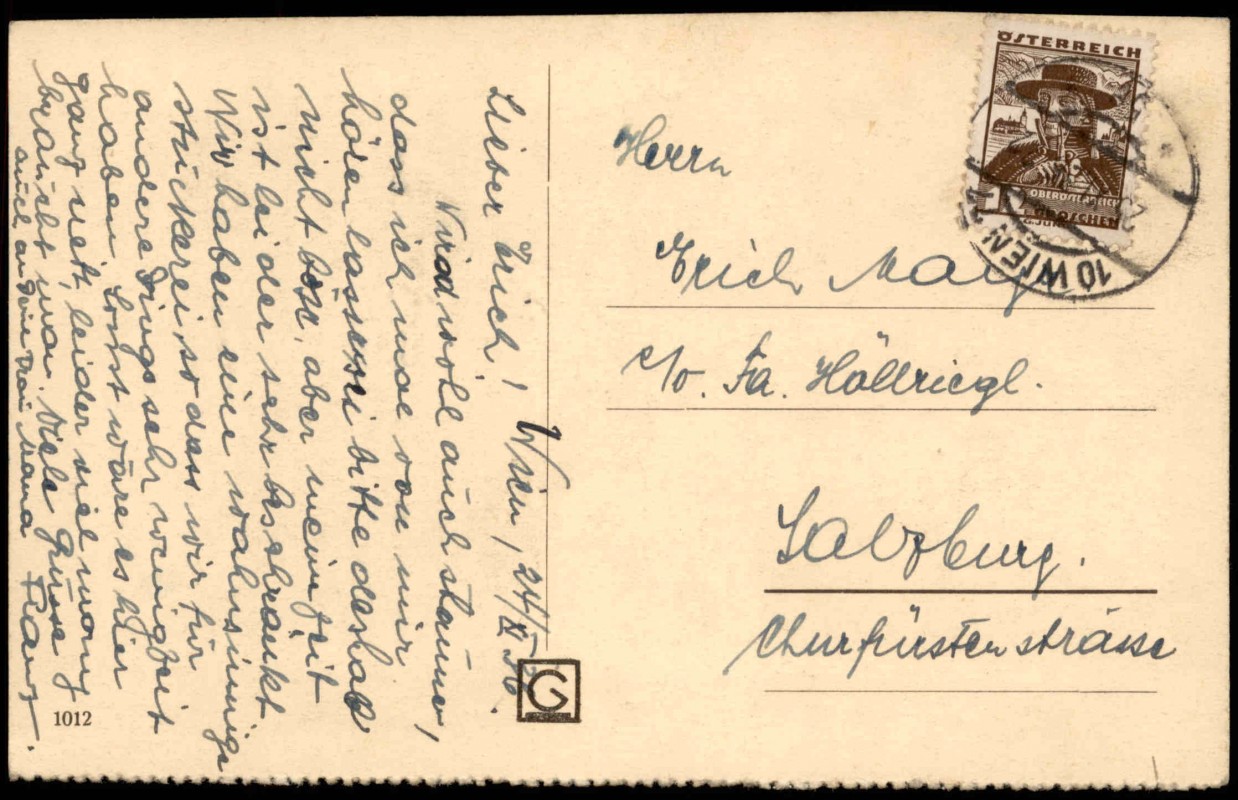 Wien, 24/XI 36.
Lieber Erich!
Wird wohl auch staunen,
dass ich mal von mir
hören lasse, sei bitte deshalb
nicht böse, aber meine Zeit
ist leider sehr beschränkt
Wir haben eine wahnsinnige
stuckerei so dass wir für
andere Dings sehr wenig Zeit
haben. Sonst wäre es hier
ganz nett, leider viel money
braucht man. Viele Grüsse
auch an Deine Mama Franz.
1012
G
Herrn
Erich
c/o. Fa. Höllriegl.
Salzburg.
Churfürstenstrasse
ÖSTERREICH
OBERÖSTERREICH
GROSCHEN
10 WIEN